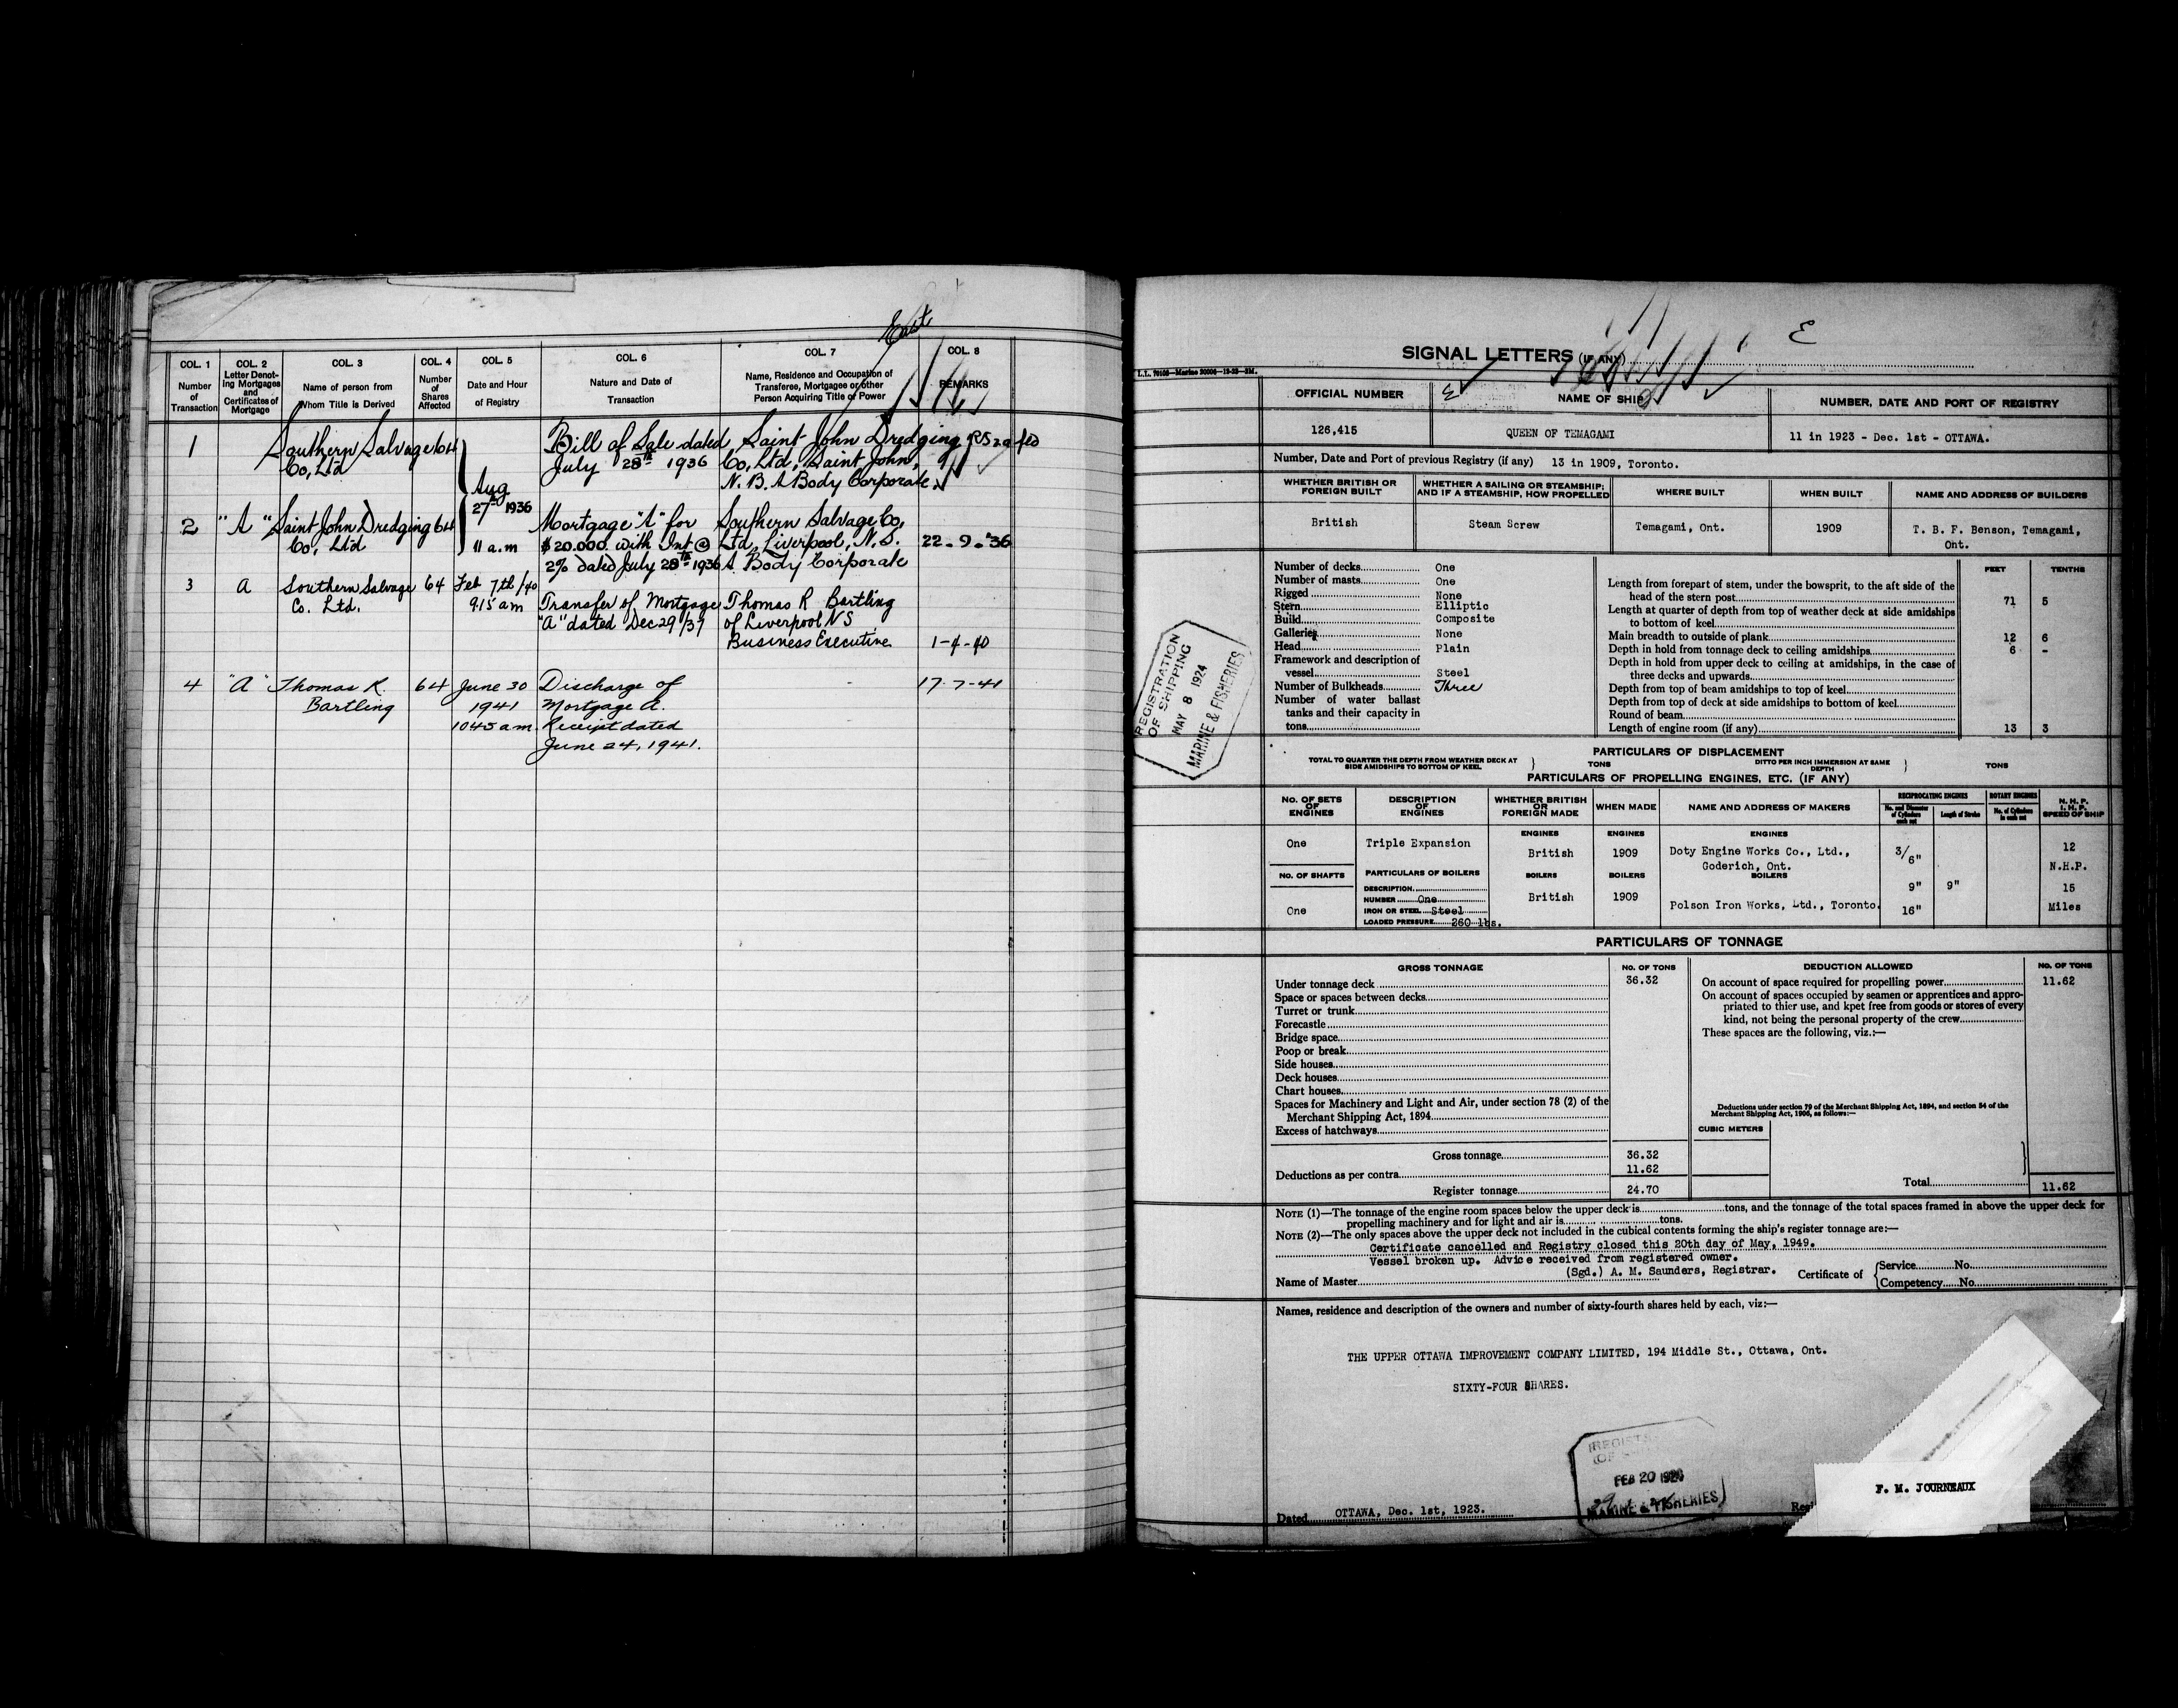 East
COL. 1 COL. 2 COL. 3 COL. 4 COL. 5 COL. 6 COL. 7 COL. 8
Number of Transaction
Letter Denoting Mortgages and Certificates of Mortgage
Name of person from Whom Title is Derived
Number of Shares Affected
Date and Hour of Registry
Nature and Date of Transaction
Name, Residence and Occupation of Transferee, Mortgagee or other Person Acquiring Title or Power
REMARKS
1 Southern Salvage 64 Bill of Sale dated Saint John Dredging
Co, Ltd July 28th 1936 Co, Ltd, Saint John,
N. B. A Body Corporate.
Aug
27th 1936
11 a.m
2 "A" Saint John Dredging 64 Mortgage "A" for Southern Salvage Co,
Co, Ltd $20.000. with Int @ Ltd, Liverpool, N.S. 22-9-'36
2% dated July 28th 1936 A Body Corporate
3 A Southern Salvage 64 Feb 7th/40
Co. Ltd. 915 am Transfer of Mortgage Thomas R Bartling
"A" dated Dec 29/37 of Liverpool NS
Business Executive 1-4-40
4 "A" Thomas R. 64 June 30 Discharge of 17-7-41
Bartling 1941 Mortgage A.
1045 am. Receipt dated
June 24, 1941.
SIGNAL LETTERS (IF ANY)
E
L.L. 70106—Marine 20006—19-23—2M.
OFFICIAL NUMBER NAME OF SHIP NUMBER, DATE AND PORT OF REGISTRY
126,415 QUEEN OF TEMAGAMI 11 in 1923 - Dec. 1st - OTTAWA.
Number, Date and Port of previous Registry (if any) 13 in 1909, Toronto.
WHETHER BRITISH OR FOREIGN BUILT
WHETHER A SAILING OR STEAMSHIP; AND IF A STEAMSHIP, HOW PROPELLED
WHERE BUILT WHEN BUILT NAME AND ADDRESS OF BUILDERS
British Steam Screw Temagami, Ont. 1909 T. B. F. Benson, Temagami,
Ont.
Number of decks One
Number of masts One
Rigged None
Stern Elliptic
Build Composite
Galleries None
Head Plain
Framework and description of
vessel Steel
Number of Bulkheads Three
Number of water ballast
tanks and their capacity in
tons
FEET TENTHS
Length from forepart of stem, under the bowsprit, to the aft side of the
head of the stern post 71 5
Length at quarter of depth from top of weather deck at side amidships
to bottom of keel
Main breadth to outside of plank 12 6
Depth in hold from tonnage deck to ceiling amidships 6 -
Depth in hold from upper deck to ceiling at amidships, in the case of
three decks and upwards
Depth from top of beam amidships to top of keel
Depth from top of deck at side amidships to bottom of keel
Round of beam
Length of engine room (if any) 13 3
REGISTRATION
OF SHIPPING
MAY 8 1924
MARINE & FISHERIES
PARTICULARS OF DISPLACEMENT
TOTAL TO QUARTER THE DEPTH FROM WEATHER DECK AT SIDE AMIDSHIPS TO BOTTOM OF KEEL } TONS DITTO PER INCH IMMERSION AT SAME DEPTH } TONS
PARTICULARS OF PROPELLING ENGINES, ETC. (IF ANY)
No. OF SETS OF ENGINES
DESCRIPTION OF ENGINES
WHETHER BRITISH OR FOREIGN MADE
WHEN MADE
NAME AND ADDRESS OF MAKERS
RECIPROCATING ENGINES
No. and Diameter of Cylinders each set
Length of Stroke
ROTARY ENGINES
No. of Cylinders in each set
N. H. P.
I. H. P.
SPEED OF SHIP
ENGINES ENGINES ENGINES
One Triple Expansion British 1909 Doty Engine Works Co., Ltd., 3/6" 12
Goderich, Ont. N.H.P.
No. OF SHAFTS PARTICULARS OF BOILERS BOILERS BOILERS BOILERS
DESCRIPTION
NUMBER One British 1909 9" 9" 15
One IRON OR STEEL Steel Polson Iron Works, Ltd., Toronto. 16" Miles
LOADED PRESSURE 260 lbs.
PARTICULARS OF TONNAGE
GROSS TONNAGE No. OF TONS DEDUCTION ALLOWED No. OF TONS
Under tonnage deck 36.32
Space or spaces between decks
Turret or trunk
Forecastle
Bridge space
Poop or break
Side houses
Deck houses
Chart houses
Spaces for Machinery and Light and Air, under section 78 (2) of the
Merchant Shipping Act, 1894
Excess of hatchways
Gross tonnage 36.32
Deductions as per contra 11.62
Register tonnage 24.70
On account of space required for propelling power 11.62
On account of spaces occupied by seamen or apprentices and appro-
priated to thier use, and kpet free from goods or stores of every
kind, not being the personal property of the crew
These spaces are the following, viz.:—
Deductions under section 79 of the Merchant Shipping Act, 1894, and section 54 of the
Merchant Shipping Act, 1906, as follows:—
CUBIC METERS
Total 11.62
NOTE (1)—The tonnage of the engine room spaces below the upper deck is tons, and the tonnage of the total spaces framed in above the upper deck for
propelling machinery and for light and air is tons.
NOTE (2)—The only spaces above the upper deck not included in the cubical contents forming the ship's register tonnage are:—
Certificate cancelled and Registry closed this 20th day of May, 1949.
Vessel broken up. Advice received from registered owner.
(Sgd.) A. M. Saunders, Registrar.
Name of Master Certificate of { Service No.
Competency No.
Names, residence and description of the owners and number of sixty-fourth shares held by each, viz:—
THE UPPER OTTAWA IMPROVEMENT COMPANY LIMITED, 194 Middle St., Ottawa, Ont.
SIXTY-FOUR SHARES.
FEB 20
MARINE & FISHERIES
Dated OTTAWA, Dec. 1st, 1923.
F. M. JOURNEAUX